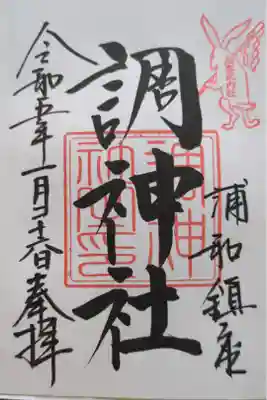 浦和鎮座
調神社
調神社
令和五年一月二十六日奉拝